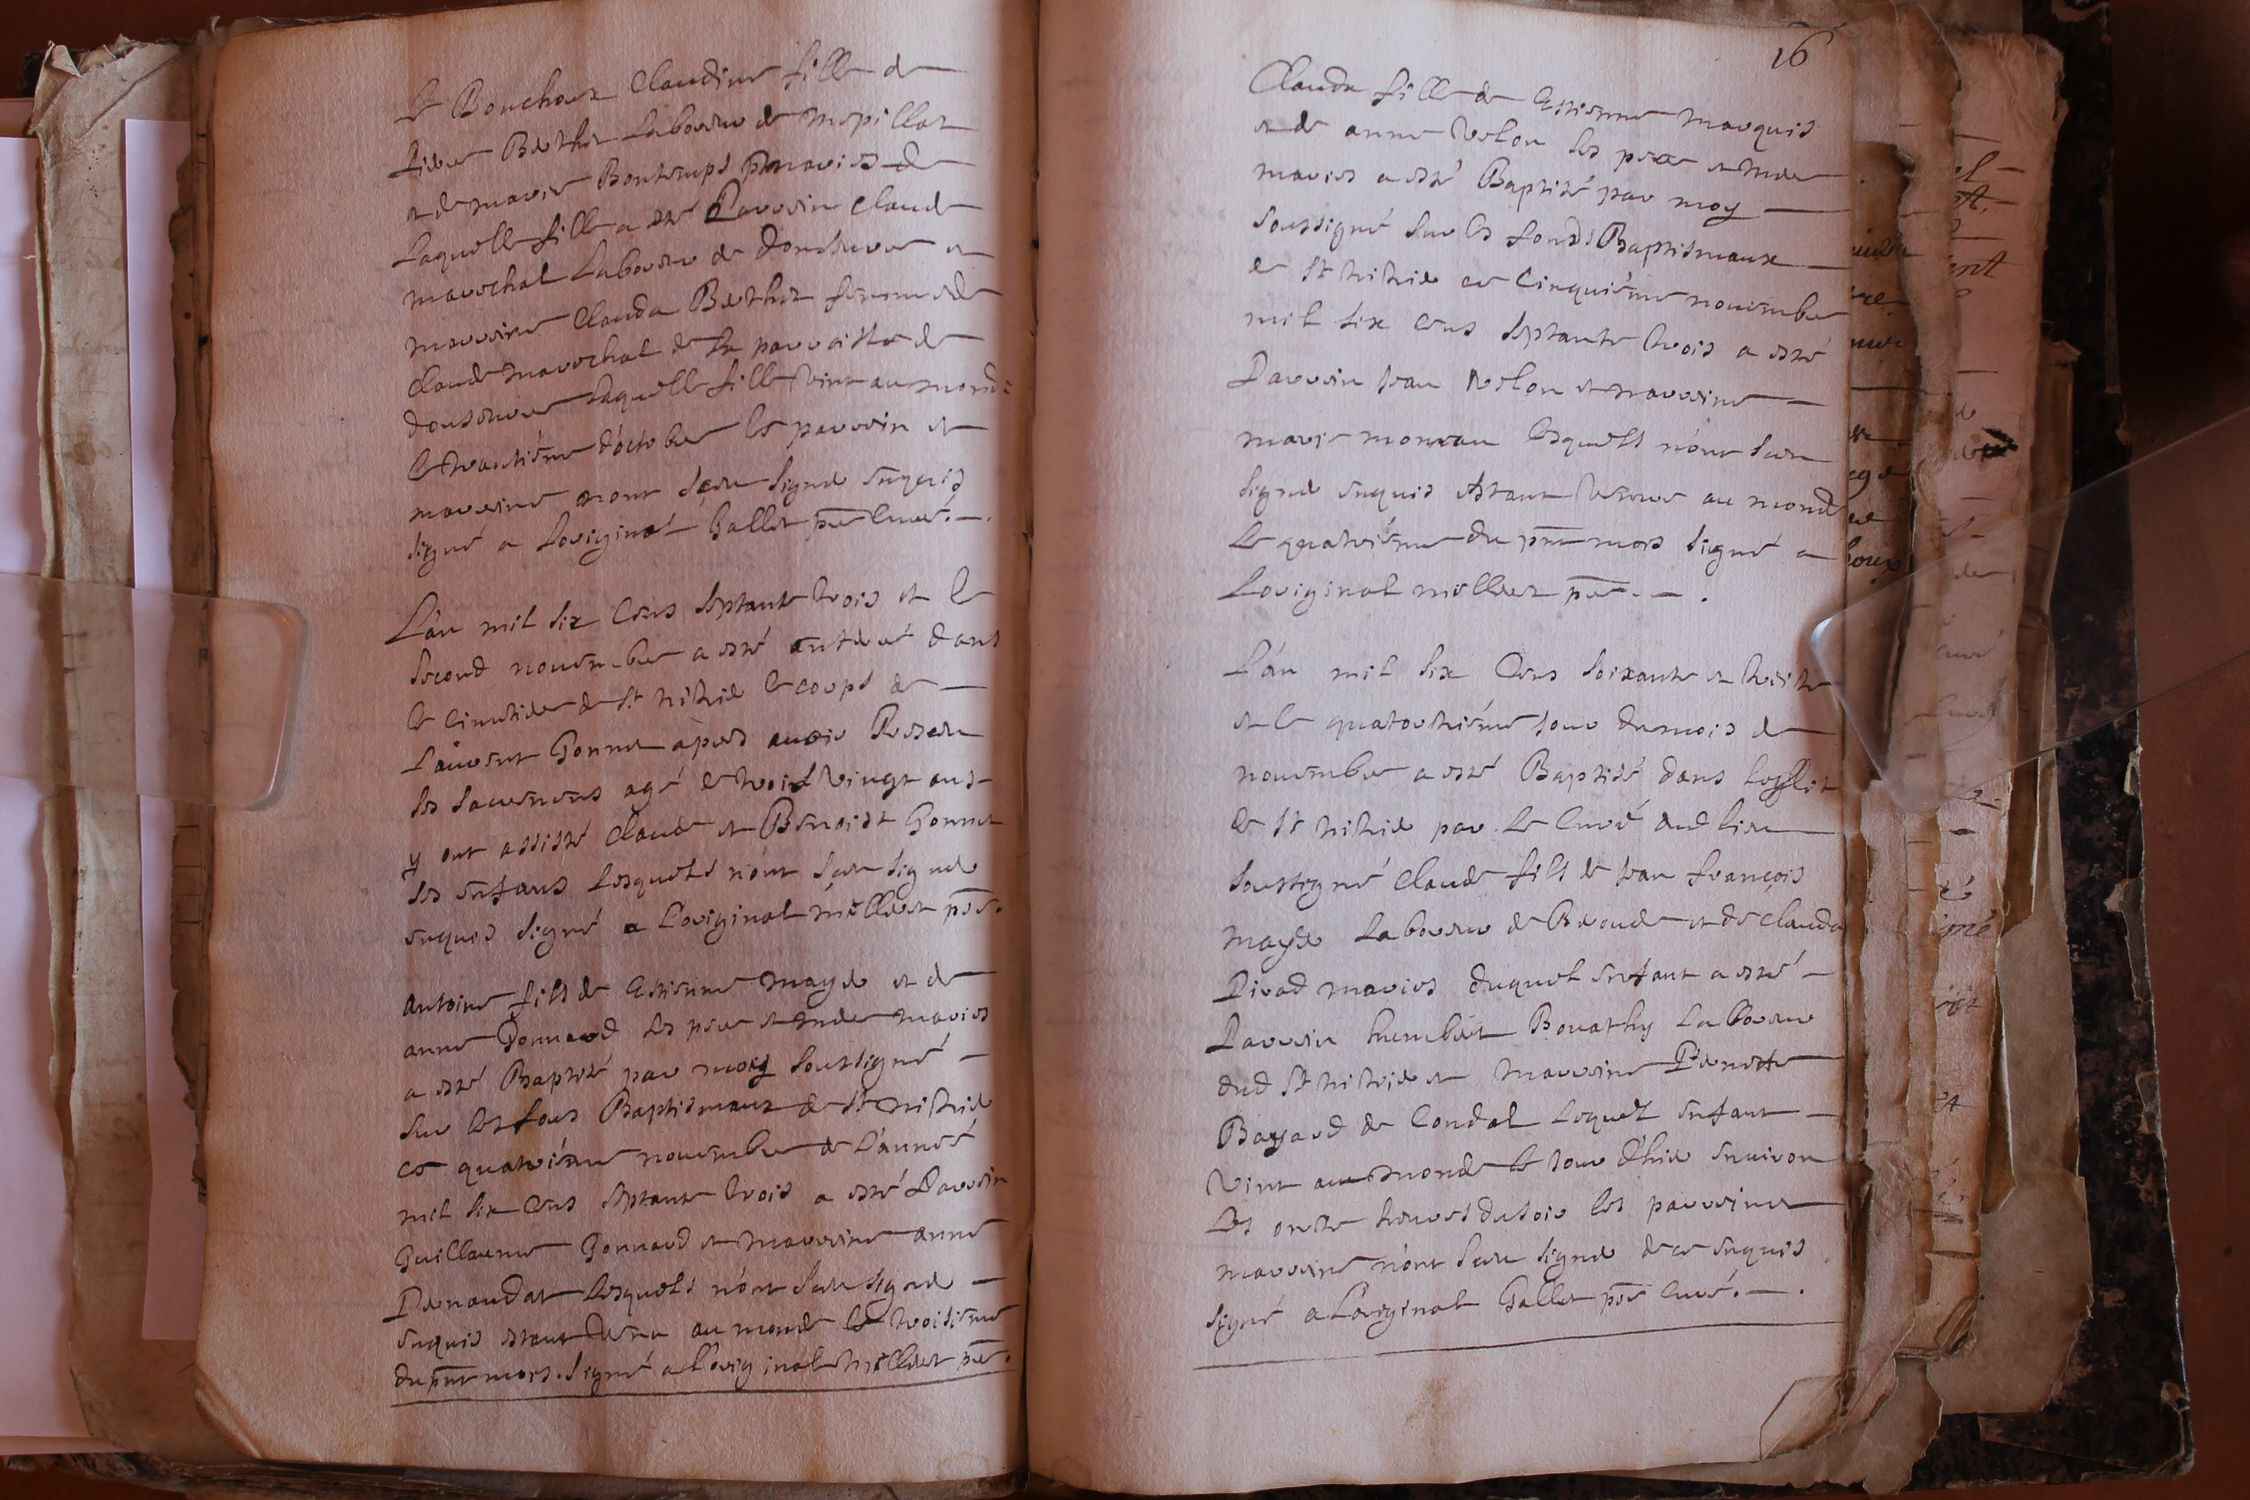 le Bouchoux Claudine fille de
Pierre Berthet Laboureur de mepillat
et de marie Bontemps mariés de
laquelle fille a esté Parrein Claude
mareschal Laboureur de donsheure et
marreine Clauda Berthet femme de
Claude mareschal de la parroisse de
donsheure laquelle fille vint au monde
le trantiéme d'octobre les parrein et
marreine nont sceu signer enquis
signé a Loriginal Gallet pbre Curé.
L'an mil six Cens septante trois et le
second nouembre a esté anterré dans
le Cimetiere de St nithie le corps de
Laurent Gonnet apres auoir Receu
les sacremens agé de trois vingt ans
y ont assisté Claude et Benoist Gonnet
ses enfans lesquels n'ont sceu signer
enquis signé a L'original millet pbre.
Antoine fils de Estienne mayer et de
anne Gonnard ses pere et mere mariés
a esté Baptisé par moy soussigné
sur les fons Baptismaux de St nithie
ce quatriéme nouembre de L'année
mil six Cens septante trois a esté Parrein
Guillaume Gonnard et marreine anne
Penaudat lesquels n'ont sceu signer
enquis estant venu au monde le troisiéme
du pnt mois. signé a L'original millet pbre.
16
Clauda fille de Estienne marquis
et de anne Velon ses pere et mere
mariés a esté Baptisé par moy
soussigné sur les fonds Baptismaux
de St nithie ce Cinquiéme nouembre
mil six cens septante trois a esté
Parrein Jean Velon et marreine
marie moreau lesquels n'ont sceu
signer enquis estant venue au monde
le quatriéme du pnt mois signé a
Loriginal millet pbre.
L'an mil six Cens soixante et treize
et le quatorziéme jour du mois de
nouembre a esté Baptisé dans leglise
de St nithie par le Curé dud lieu
soussigné Claude fils de Jean françois
mayer Laboureur de et de Clauda
Pirad mariés duquel enfant a esté
Parrein humbert Bouathy Laboureur
dud St nithie et marreine Pernette
Bayard de Condal lequel enfant
vint au monde le jour d'hier enuiron
les onze heures du soir les parrein et
marreine n'ont sceu signer de ce enquis
signé a L'original Gallet pbre Curé.